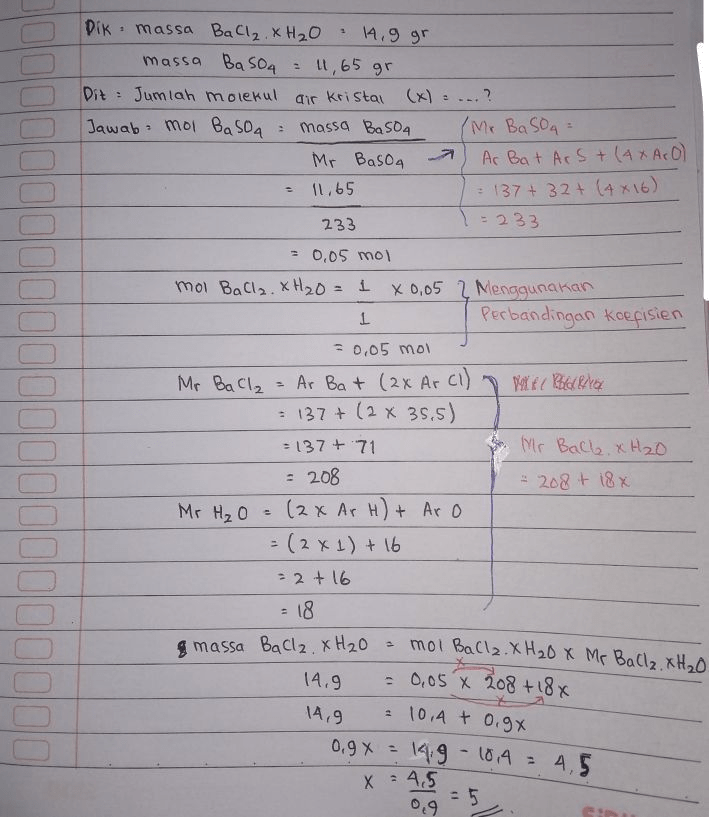 Dik : massa BaCl2 . xH2O = 14,9 gr
massa BaSO4 = 11,65 gr
Dit : Jumlah molekul air kristal (x) = ....?
Jawab : mol BaSO4 = massa BaSO4
Mr BaSO4
= 11,65
233
= 0,05 mol
Mr BaSO4 =
Ar Ba + Ar S + (4 x Ar O)
= 137 + 32 + (4 x 16)
= 233
mol BaCl2 . xH2O = 1 x 0,05
1
= 0,05 mol
Menggunakan
Perbandingan koefisien
Mr BaCl2 = Ar Ba + (2 x Ar Cl)
= 137 + (2 x 35,5)
= 137 + 71
= 208
Mr H2O = (2 x Ar H) + Ar O
= (2 x 1) + 16
= 2 + 16
= 18
Mr BaCl2 . xH2O
= 208 + 18x
massa BaCl2 . xH2O = mol BaCl2 . xH2O x Mr BaCl2 . xH2O
14,9 = 0,05 x 208 + 18x
x
x
14,9 = 10,4 + 0,9x
0,9x = 14,9 - 10,4 = 4,5
x = 4,5 = 5
0,9